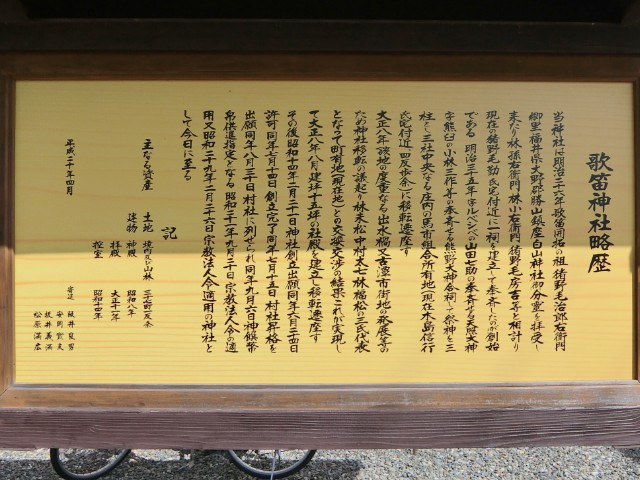 歌笛神社略歴
当神社は明治二十六年歌笛開拓の祖猪野毛治郎右衛門
郷里福井県大野郡勝山鎮座白山神社御分霊を拝受し
来たり林孫右衛門林小右衛門猪野毛房吉等と相計り
現在の猪野毛勤氏宅付近に一祠を建立して奉斎したのが創始
である 明治三十五年字ルベシベの山田七助の奉斎する天照大神
字熊臼の小林三作等の奉斎せる熊野大神合祠して祭神を三
柱とし三社中央なる庄内の馬市組合所有地(現在木島信行
氏宅付近一四反歩余)に移転遷座す
大正八年該地の度重なる出水禍又古潭市街地の発展等の
ため神社移転の議起り林末松中村太七林福松の三氏代表
となって町有地(現在地)との交換交渉の結果これが実現し
て大正八年八月建坪十五坪の社殿を建立し移転遷座す
その後昭和十四年二月二十一日神社創立出願同年六月二十四日
許可同年七月十四日創立完了同年七月十五日村社昇格を
出願同年八月三十日村社に列せられ同年九月六日神饌幣
帛供進指定となる昭和二十一年九月三十日宗教法人令の適
用又昭和二十九年二月二十七日宗教法人令適用の神社と
して今日に至る
記
主なる資産 土地 境内及び山林 三千町一反余
建物 神殿 昭和八年
拝殿 大正十一年
控室 昭和四十年
平成二十年四月
寄進 阪井良男
安岡賢史
坂井義満
松原満広